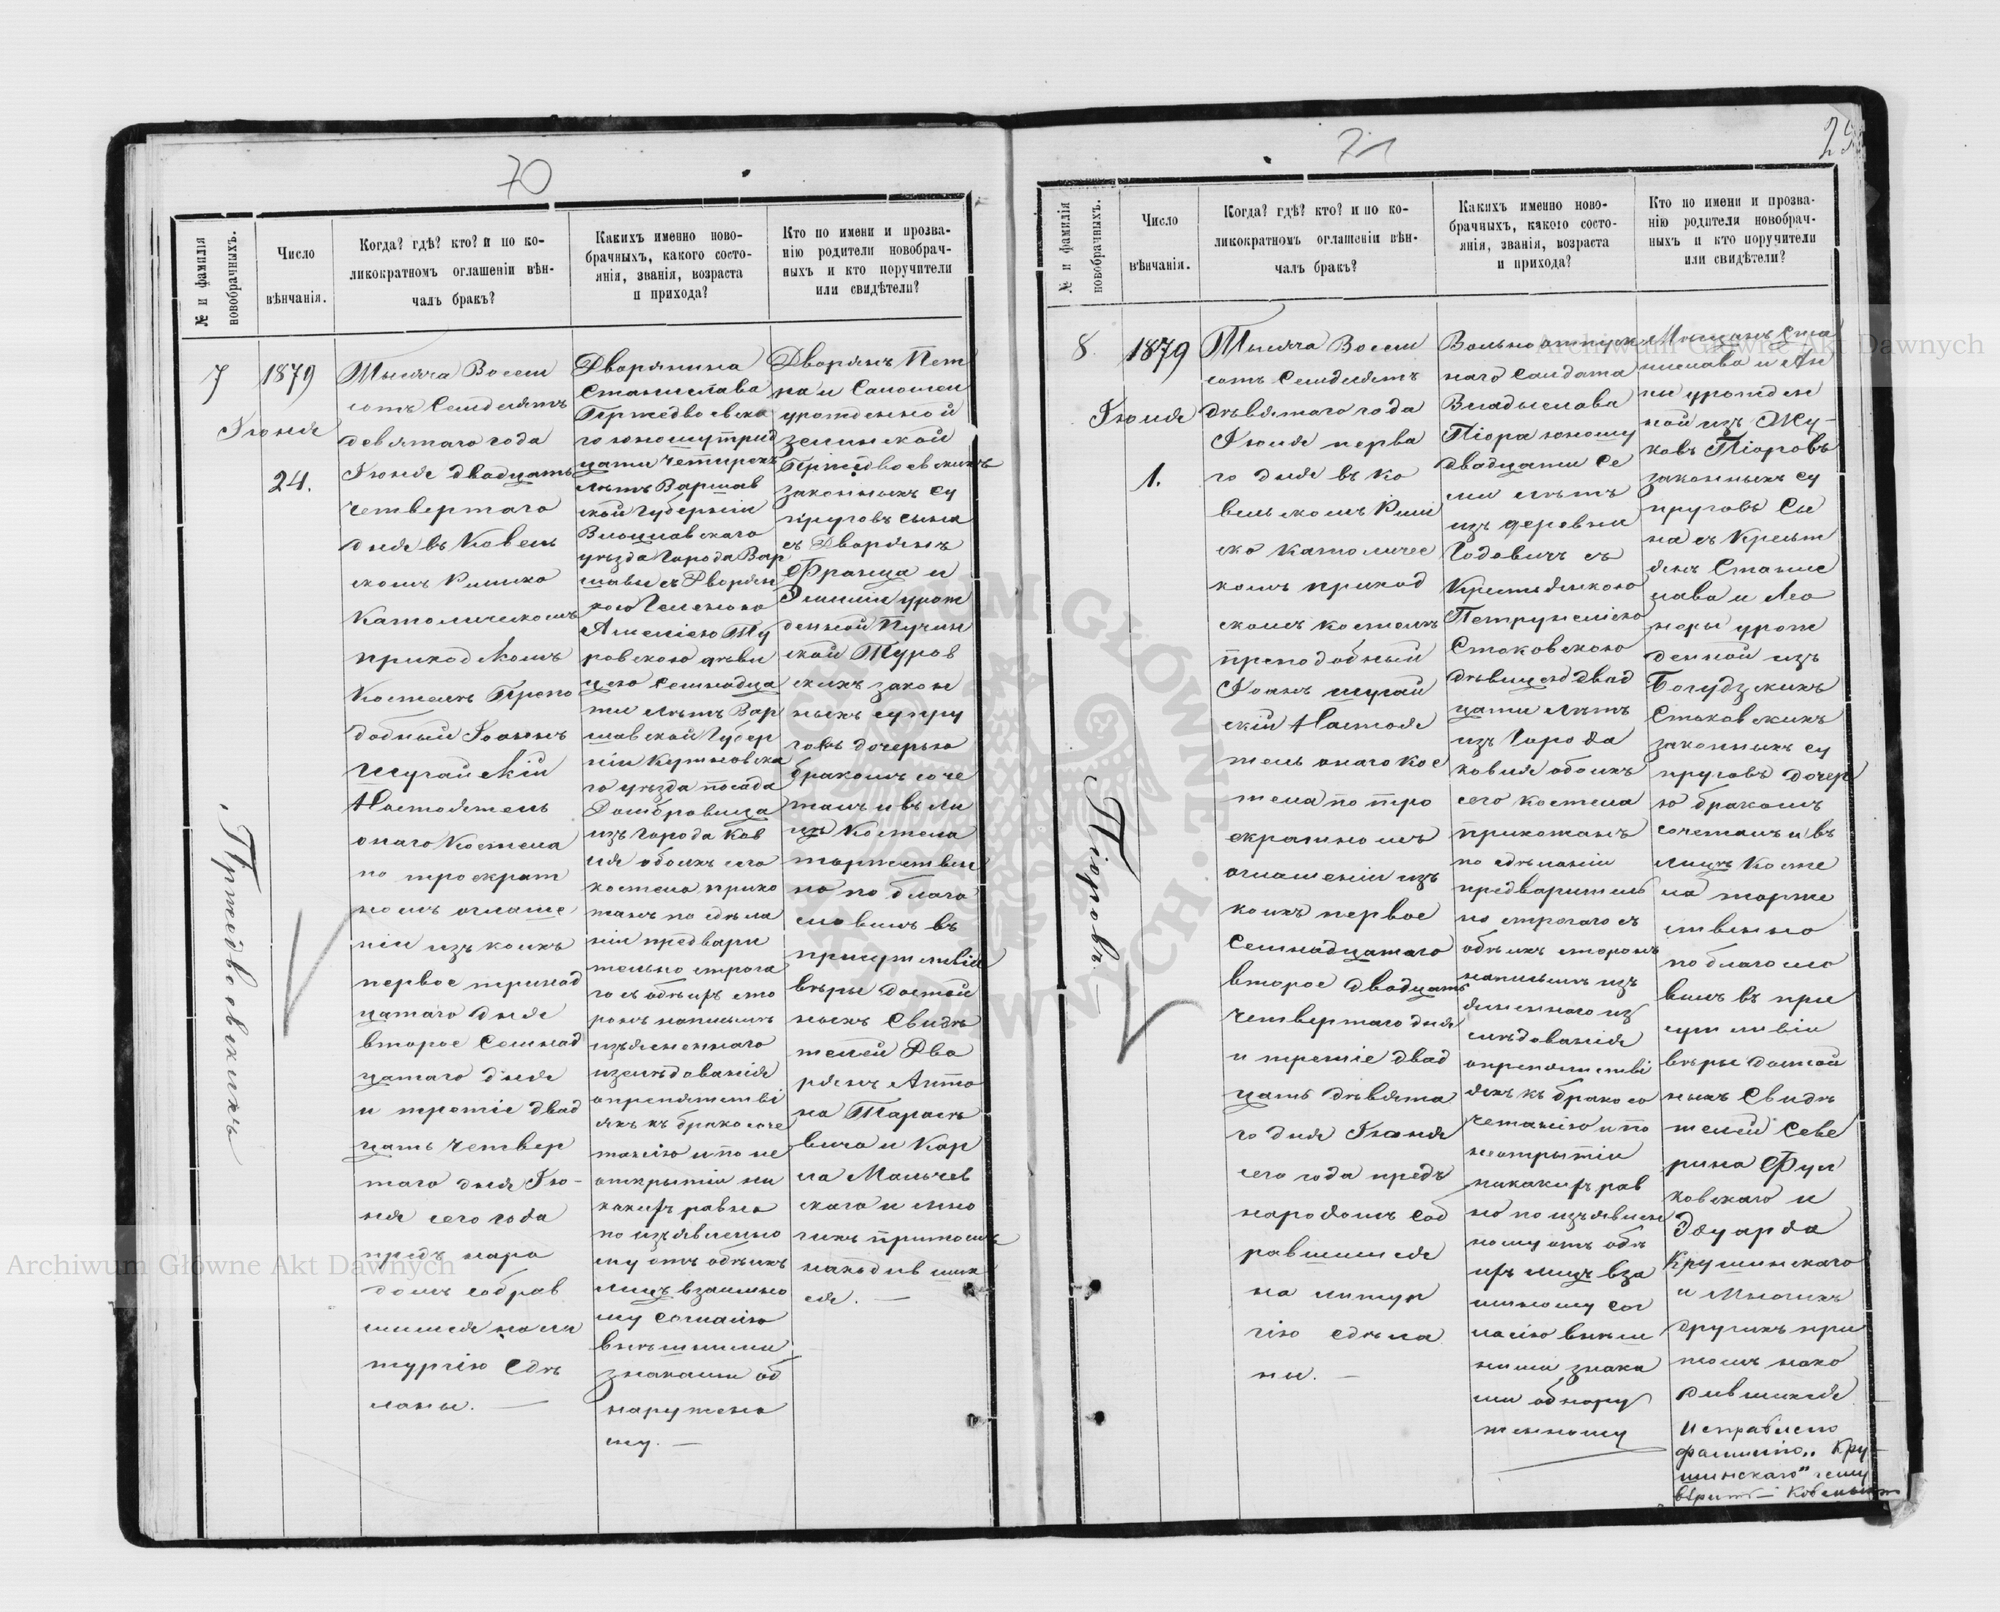 70
№ и фамилія
новобрачныхъ.
Число
вѣнчанія.
Когда? гдѣ? кто? и по ко-
ликократномъ оглашеніи вѣн-
чалъ бракъ?
Какихъ именно ново-
брачныхъ, какого состо-
янія, званія, возраста
и прихода?
Кто по имени и прозва-
нію родители новобрач-
ныхъ и кто поручители
или свидѣтели?
7
Пржедвоевскихъ
1879
Іюня
24.
Тысяча Восем
сотъ Семдесятъ
девятаго года
Іюня двадцать
четвертаго
дня въ Ковель
скомъ Римско
Католическомъ
приходскомъ
Костелѣ Препо
добный Іоаннъ
Шугайскій
Настоятель
онаго Костела
по троекрат
номъ оглаше
ніи изъ коихъ
первое тринад
цатаго дня
второе Семнад
цатаго дня
и третіе двад
цать четвер
таго дня Ію-
ня сего года
предъ наро
домъ собрав
шимся на ли
тургію Сдѣ
ланы. —
Дворянина
Станислава
Пржедвоевска
го юношу трид
цати четырехъ
лѣтъ Варшав
ской Губерніи
Влоцлавскаго
уѣзда Города Вар
шавы съ Дворян
кою Геленою
Амеліею Ту
ровскою дѣви
цею Семнадца
ти лѣтъ Вар
шавской Губер
ніи Кутновска
го уѣзда посада
Домбровица
изъ Города Ков
ля обоихъ сего
костела прихо
жанъ по сдѣла
ніи предвари
тельно строга
го съ обѣихъ сто
ронъ написмѣ
изъясненнаго
изслѣдованія
о препятстві
яхъ къ бракосоче
танію и по не
открытіи ни
какихъ равно
по изъявлено
му отъ обѣихъ
лицъ взаимно
му согласію
внѣшними
знаками об
наружено
му. —
Дворянъ Пет
ра и Саломеи
урожденной
Зелинской
Пржедвоевскихъ
законныхъ су
пруговъ сына
съ Дворянъ
Франца и
Эмиліи урож
денной Пучин
ской Туров
скихъ закон
ныхъ супру
говъ дочерью
бракомъ соче
талъ и въ ли
цѣ Костела
торжествен
но по благо
словилъ въ
присутствіи
вѣры достой
ныхъ Свидѣ
телей Дво
рянъ Анто
на Тарасѣ
вича и Кар
ла Мальчев
скаго и мно
гихъ притомъ
находивших
ся. —
71
25
№ и фамилія
новобрачныхъ.
Число
вѣнчанія.
Когда? гдѣ? кто? и по ко-
ликократномъ оглашеніи вѣн-
чалъ бракъ?
Какихъ именно ново-
брачныхъ, какого состо-
янія, званія, возраста
и прихода?
Кто по имени и прозва-
нію родители новобрач-
ныхъ и кто поручители
или свидѣтели?
8.
Піоровъ
1879
Іюля
1.
Тысяча Восем
сотъ Семдесятъ
дѣвятаго года
Іюля перва
го дня въ Ко
вельскомъ Рим
ско Католичес
комъ приход
скомъ костелѣ
преподобный
Іоанъ Шугай
скій Настоя
тель онаго Кос
тела по тро
екратномъ
оглашеніи изъ
коихъ первое
Семнадцатаго
второе двадцать
четвертаго дня
и третіе двад
цать дѣвята
го дня Іюня
сего года предъ
народомъ соб
равшимся
на литур
гію сдѣла
ны. —
Вольноотпущен
наго Солдата
Владыслава
Піора юношу
двадцати се
ми лѣтъ
изъ деревни
Годовичъ съ
Крестьянкою
Петрунелею
Стаковскою
дѣвицею двад
цати лѣтъ
изъ Города
Ковля обоихъ
сего костела
прихожанъ
по сдѣланіи
предваритель
но строгаго съ
обѣихъ сторонъ
написмѣ изъ
ясненнаго из
слѣдованія
о препятстві
яхъ къ бракосо
четанію и по
неоткрытіи
никакихъ рав
но по изъявлен
ному отъ обѣ
ихъ лицъ вза
имному сог
ласію внѣш
ними знака
ми обнару
женному
Мѣщанъ Ста
нислава и Ан
ны урожден
ной изъ Жу-
ковъ Піоровъ
законныхъ су
пруговъ Сы
на съ Крестъ
янъ Станис
лава и Лео
норы урож
денной изъ
Богудзкихъ
Стаковскихъ
законныхъ су
пруговъ дочер
ю бракомъ
сочеталъ и въ
лицѣ Косте
ла торже
ственно
по благосло
вилъ въ при
сутствіи
вѣры достой
ныхъ Свидѣ
телей Севе
рина Фул
ковскаго и
Эдуарда
Крушинскаго
и Многихъ
другихъ при
томъ нахо
дившихся
Исправлено
фамилію „Кру-
шинскаго“ чему
вѣрить — Ковельск
Archiwum Główne Akt Dawnych
Archiwum Główne Akt Dawnych
ARCHIWUM GŁÓWNE AKT DAWNYCH